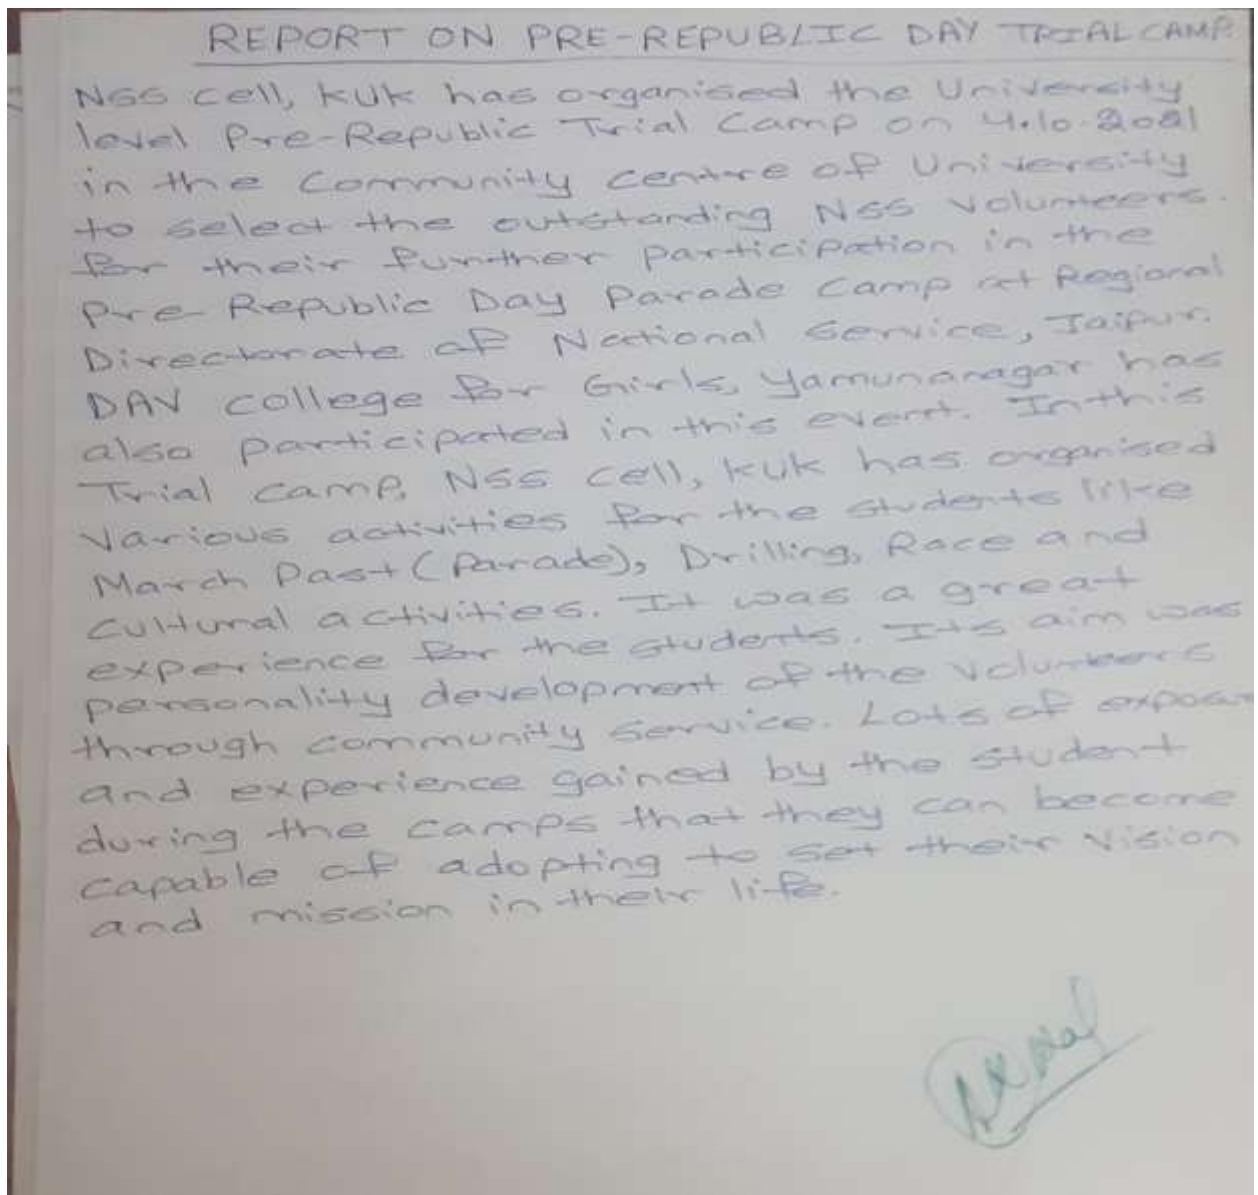 REPORT ON PRE-REPUBLIC DAY TRIAL CAMP
NSS cell, KUK has organised the University
level Pre-Republic Trial Camp on 4.10.2021
in the Community centre of University
to select the outstanding NSS volunteers.
for their further participation in the
Pre-Republic Day Parade Camp at Regional
Directorate of National Service, Jaipur.
DAV college for Girls, Yamunanagar has
also participated in this event. In this
Trial camp, NSS cell, KUK has organised
various activities for the students like
March Past (Parade), Drilling, Race and
cultural activities. It was a great
experience for the students. Its aim was
personality development of the volunteers
through community service. Lots of
and experience gained by the student
during the camps that they can become
capable of adopting to set their vision
and mission in their life.